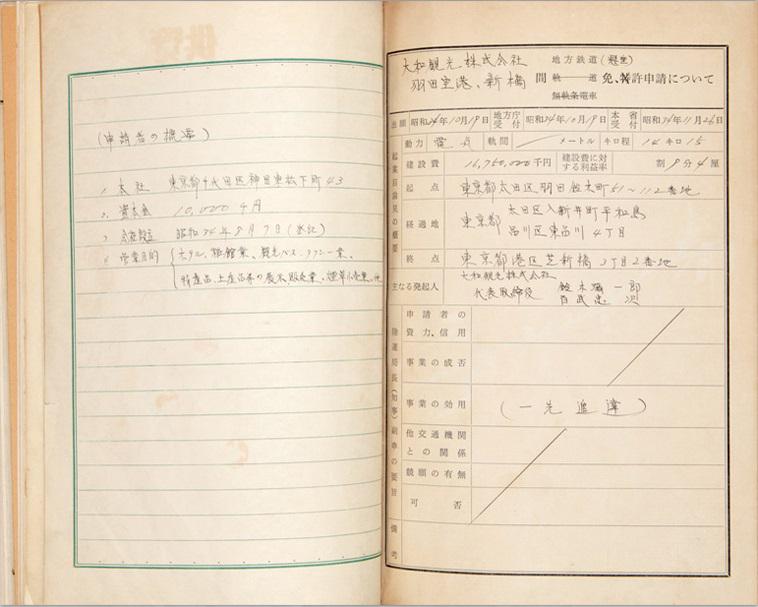 (申請者の概要)
1. 本社 東京都千代田区神田東松下町43
2. 資本金 10,000千円
3. 会社設立 昭和34年8月7日(登記)
4 営業目的 ホテル、旅館業、観光バス、タクシー業、
特産品、土産品等の展示販売業、煙草小売業、他
大和観光株式会社 地方鉄道
羽田空港、新橋 間 軌 道 免、特許申請について
無軌条電車
出願 昭和34年10月19日 地方庁受付 昭和34年10月19日 本省受付 昭和34年11月26日
動力 電気 軌間 メートル キロ程 14キロ15
起業目論見の概要
建設費 16,760,000千円 建設費に対する利益率 割9分4厘
起点 東京都大田区羽田鈴木町61〜112番地
経過地 東京都 大田区入新井町平松島
品川区東品川4丁目
終点 東京都港区芝新橋3丁目2番地
主なる発起人 大和観光株式会社
代表取締役 鈴木 一郎
次
陸運局長(知事)副申の要旨
申請者の資力、信用
事業の成否
事業の効用 (一先追達)
他交通機関との関係
競願の有無
可否
備考